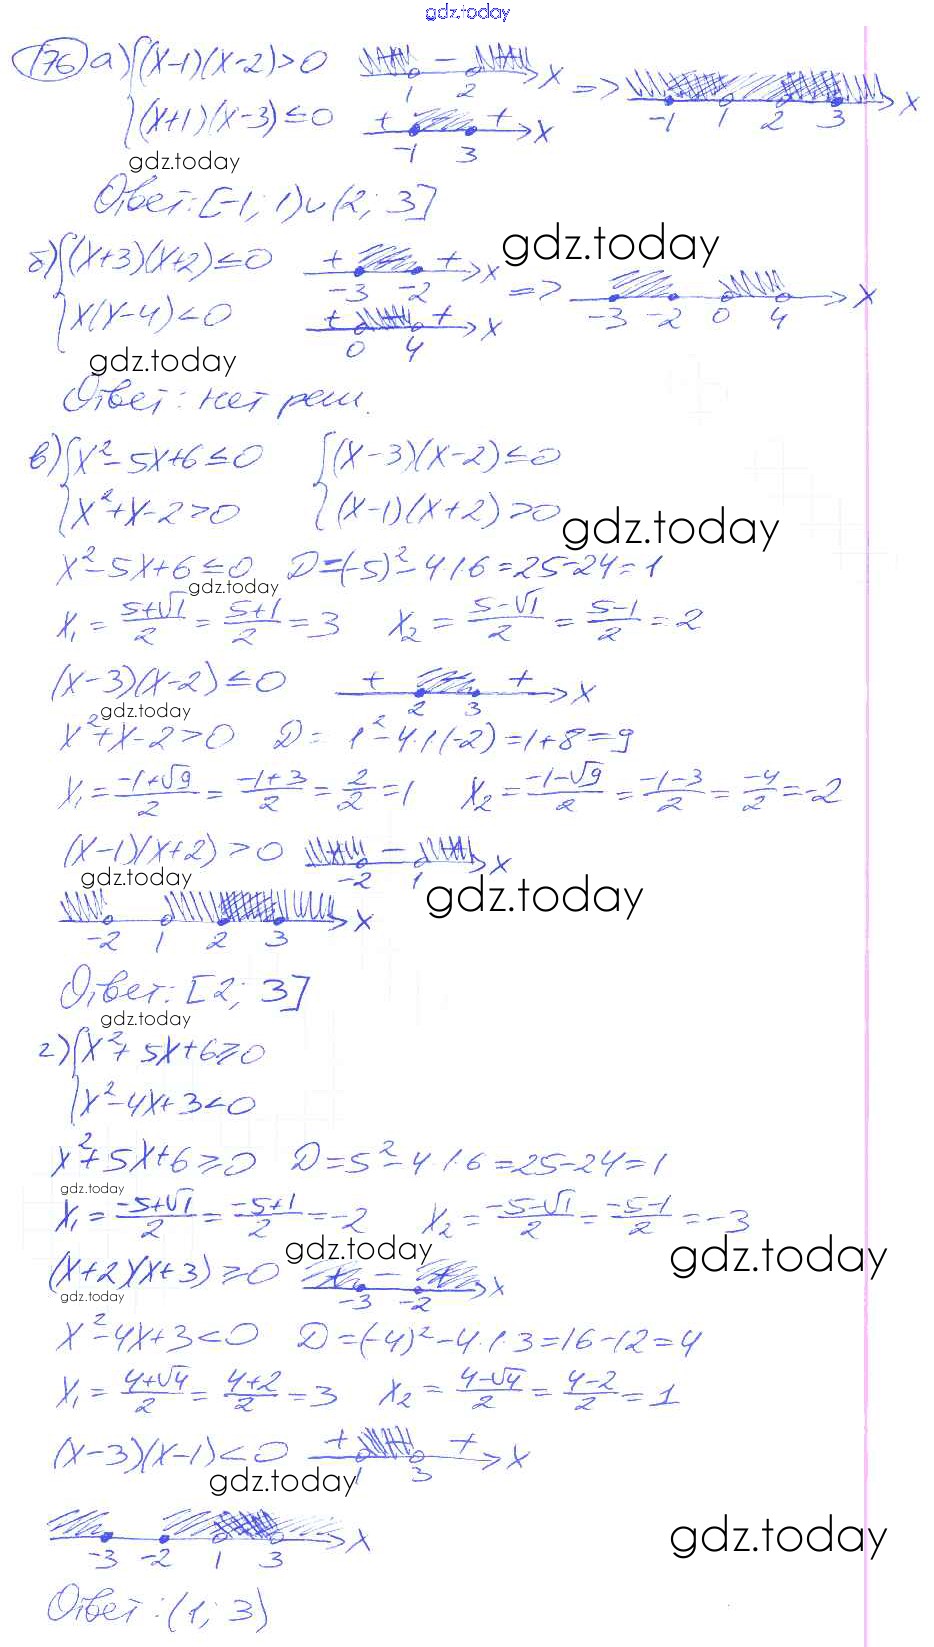 gdz.today
176 а) { (x-1)(x-2)>0 + - + 1 2 x => -1 1 2 3 x
(x+1)(x-3)≤0 + + -1 3 x
gdz.today
Ответ: [-1; 1)∪(2; 3]
gdz.today
б) { (x+3)(x+2)≤0 + + -3 -2 x => -3 -2 0 4 x
x(x-4)<0 + - + 0 4 x
gdz.today
Ответ: нет реш.
в) { x²-5x+6≤0 { (x-3)(x-2)≤0
x²+x-2>0 (x-1)(x+2)>0
gdz.today
x²-5x+6≤0 D=(-5)²-4·1·6=25-24=1
gdz.today
x₁ = (5+√1)/2 = (5+1)/2 = 3 x₂ = (5-√1)/2 = (5-1)/2 = 2
(x-3)(x-2)≤0 + - + 2 3 x
gdz.today
x²+x-2>0 D = 1²-4·1·(-2)=1+8=9
x₁ = (-1+√9)/2 = (-1+3)/2 = 2/2 = 1 x₂ = (-1-√9)/2 = (-1-3)/2 = -4/2 = -2
(x-1)(x+2)>0 + - + -2 1 x
gdz.today
gdz.today
-2 1 2 3 x
Ответ: [2; 3]
gdz.today
г) { x²+5x+6≥0
x²-4x+3<0
x²+5x+6≥0 D=5²-4·1·6=25-24=1
gdz.today
x₁ = (-5+√1)/2 = (-5+1)/2 = -2 x₂ = (-5-√1)/2 = (-5-1)/2 = -3
gdz.today
gdz.today
(x+2)(x+3)≥0 + - + -3 -2 x
gdz.today
x²-4x+3<0 D=(-4)²-4·1·3=16-12=4
x₁ = (4+√4)/2 = (4+2)/2 = 3 x₂ = (4-√4)/2 = (4-2)/2 = 1
(x-3)(x-1)<0 + - + 1 3 x
gdz.today
gdz.today
-3 -2 1 3 x
Ответ: (1; 3)